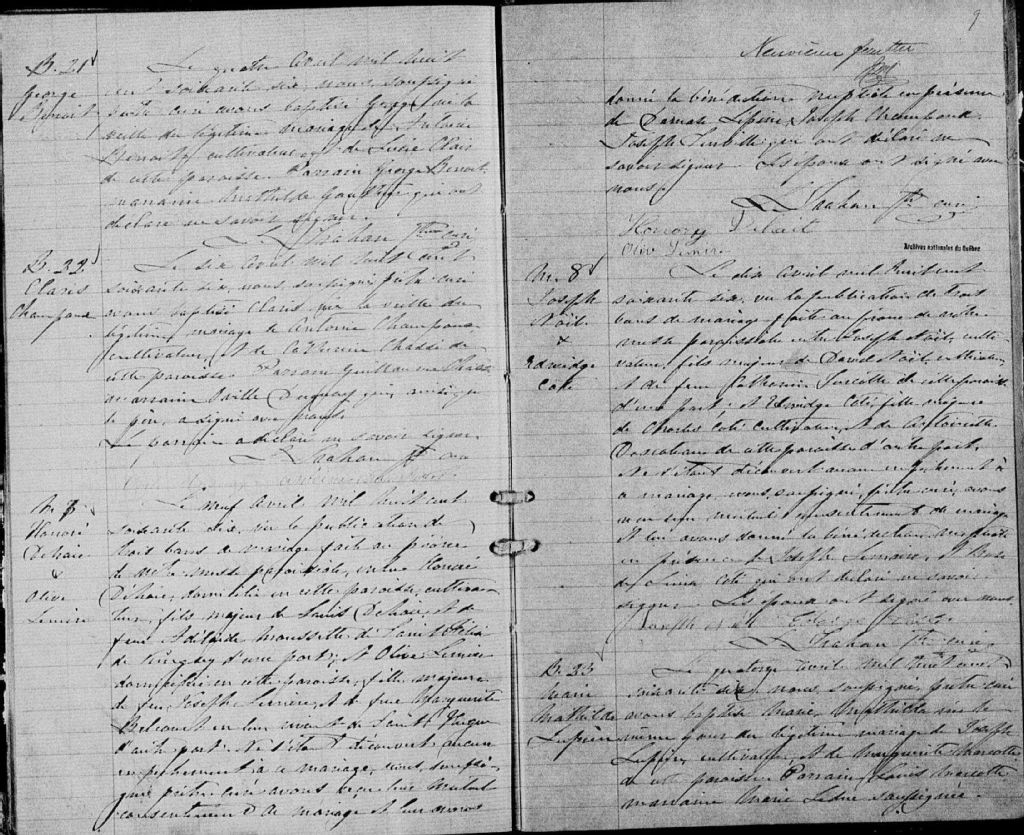 B. 21
George
Benoit
Le quatre avril mil huit
cent soixante six, nous, soussigné
prêtre curé avons baptisé George né la
veille du légitime mariage de
Benoit, cultivateur et de Lucie Clair
de cette paroisse. Parrain George Benoit,
marraine Mathilde qui ont
déclaré ne savoir signer.
L. Trahan Ptre curé
B. 22
Claris
Champoux
Le six avril mil huit cent
soixante six, nous, soussigné, prêtre curé
avons baptisé Claris, né la veille du
légitime mariage de Antoine Champoux
cultivateur, et de Catherine
cette paroisse. Parrain
marraine qui, ainsi que
le père, a signé avec nous.
Le parrain a déclaré ne savoir signer.
L. Trahan Ptre curé
M. 7
Honoré
Dehaie
&
Olive
Lemire
Le neuf avril mil huit cent
soixante six, vu la publication de
trois bans de mariage faite au prône
de notre messe paroissiale, entre Honoré
Dehaie, domicilié en cette paroisse, cultiva-
teur, fils majeur de Louis Dehaie, et de
feue Adélaide de Saint
de Kingsey d'une part; et Olive Lemire
domiciliée en cette paroisse, fille majeure
de feu Joseph Lemire, et de feue Marguerite
Belcourt en leur vivant de Saint
d'autre part. Ne s'étant découvert aucun
empêchement à ce mariage, nous, soussi-
gné prêtre curé avons reçu leur mutuel
consentement de mariage et leur avons
9
Neuvième feuillet
donné la bénédiction nuptiale en présence
de Lupien, Joseph
Joseph qui ont déclaré ne
savoir signer. Les époux ont signé avec
nous.
L. Trahan Ptre curé
Honoré
Olive Lemire
Archives nationales du Québec
M. 8
Joseph
Noël
&
Edwidge
Coté
Le dix avril mil huit cent
soixante six, vu la publication de trois
bans de mariage faite au prône de notre
messe paroissiale entre Joseph Noël, culti-
vateur, fils majeur de David Noël, cultivateur
et de feue Catherine Turcotte de cette paroisse
d'une part; et Edwidge Coté, fille majeure
de Charles Coté cultivateur, et de Antoinette
de cette paroisse d'autre part.
Ne s'étant découvert aucun empêchement à
ce mariage, nous, soussigné, prêtre curé, avons
reçu leur mutuel consentement de mariage
et leur avons donné la bénédiction nuptiale
en présence de Joseph Lemire, et
Coté qui ont déclaré ne savoir
signer. Les époux ont signé avec nous.
Joseph
L. Trahan Ptre curé
B. 23
Marie
Mathilde
Lupien
Le quatorze avril mil huit cent
soixante six, nous, soussigné, prêtre curé
avons baptisé Marie Mathilde née le
même jour du légitime mariage de Joseph
Lupien, cultivateur, et de Marguerite Marcotte
de cette paroisse. Parrain, Louis Marcotte
marraine Marie Leduc soussignée.